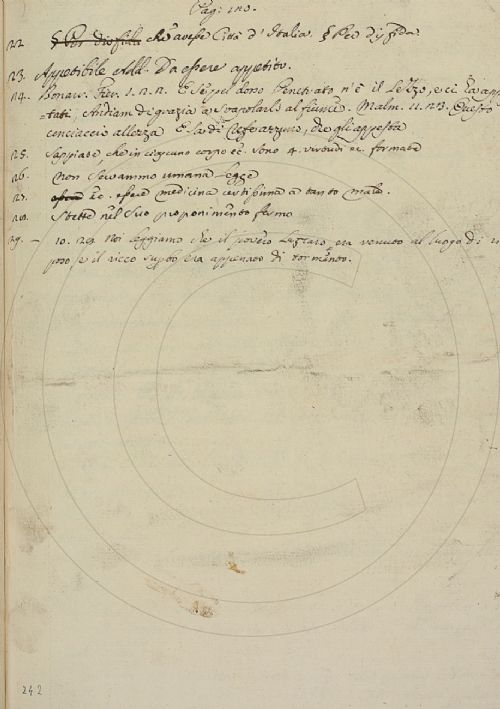 Pag: 120.
22. § Per disfida che avesse Città d'Italia. § Per disfida.
23. Appetibile Add. Da essere appetito.
24. Bonar. Fier. 1. 2. 2. E se pel dono Penetrato n'è il Lezzo, e ci ha app
estati; Andiam di grazia a al fiume. Malm. 11. 23. Questo
cenciaccio allezza E sa di che gli appesta
25. Sappiate che in ciascuno corpo ec. sono 4. virtudi ec. formate
26. Non umana legge
27. ec. essere medicina certissima a tanto male.
28. Stette nel suo proponimento fermo
29. — 10. 29. Noi leggiamo che il povero Lazzaro era venuto al luogo di ri
poso, e il ricco era appenato di tormento.
242